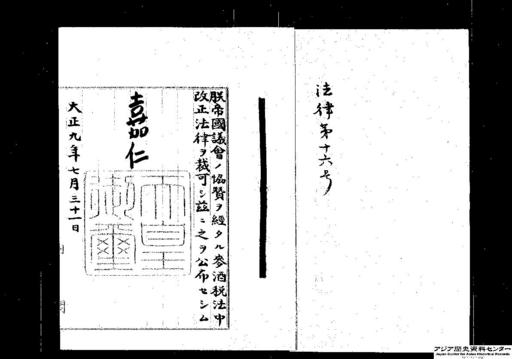 法律第十六号
朕帝國議會ノ協賛ヲ經タル麥酒税法中
改正法律ヲ裁可シ茲ニ之ヲ公布セシム
嘉仁
天皇
御璽
大正九年七月三十一日
アジア歴史資料センター
Japan Center for Asian Historical Records